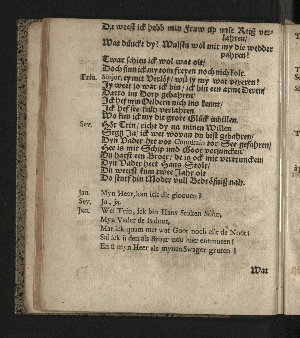 Du weest ick hebb min Fraw up unse Reiß ver-
lahren/
Wat dünckt dy? Wulstu wol mit my die wedder
pahren?
Twar schint ick wol wat olt/
Doch sinn ick my tom freyen noch nich kolt.
Trin. Sinjor, ey mit Verlöff/ wil jy my wat vexeren?
Jy weet jo wat ick bin/ ick bin ein arme Deren/
Darto im Dorp gebahren/
Ick hef min Oeldern nich ins kennt/
Ick hef see früh verlahren.
Wo kan ick my die grote Glück inbillen.
Sev. Hör Trin/ richt dy na minen Willen.
Segg Ja/ ick wet wovan du bist gebahren/
Dyn Vader het vor Constabel tor See gefahren/
Hee is mit Schip und Goet versuncken/
Du harst een Broer/ de is ock mit verdruncken
Dyn Vader heet Hans Stole/
Du weerst kum twee Jahr olt
Do sturf din Moder vull Bedröfniß nah.
Jan. Myn Heer, kan ick die glooven?
Sev. Ja, ja.
Jan. Wel Trin, ick bin Hans Stolten Söhn,
Myn Vader de is doot,
Mar ick quam met wat Goet noch uit de Noot:
Sal ick u den als Broer nou hier ontmoeten?
En u myn Heer als mynen Swager groeten?
War